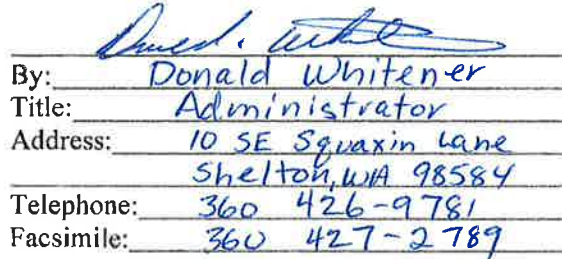 By: Donald Whitener
Title: Administrator
Address: 10 SE Squaxin Lane
Shelton, WA 98584
Telephone: 360 426-9781
Facsimile: 360 427-2789